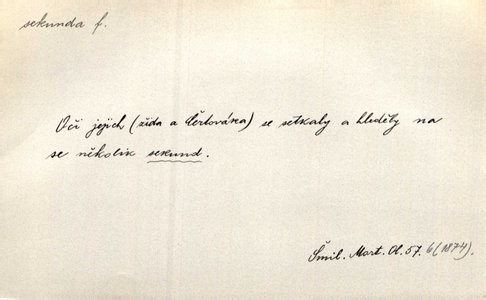 sekunda f.
Oči jejich (žida a Čertováka) se setkaly a hleděly na
se několik sekund.
Šmil. Mart. Ol. 57. 6 (1874).